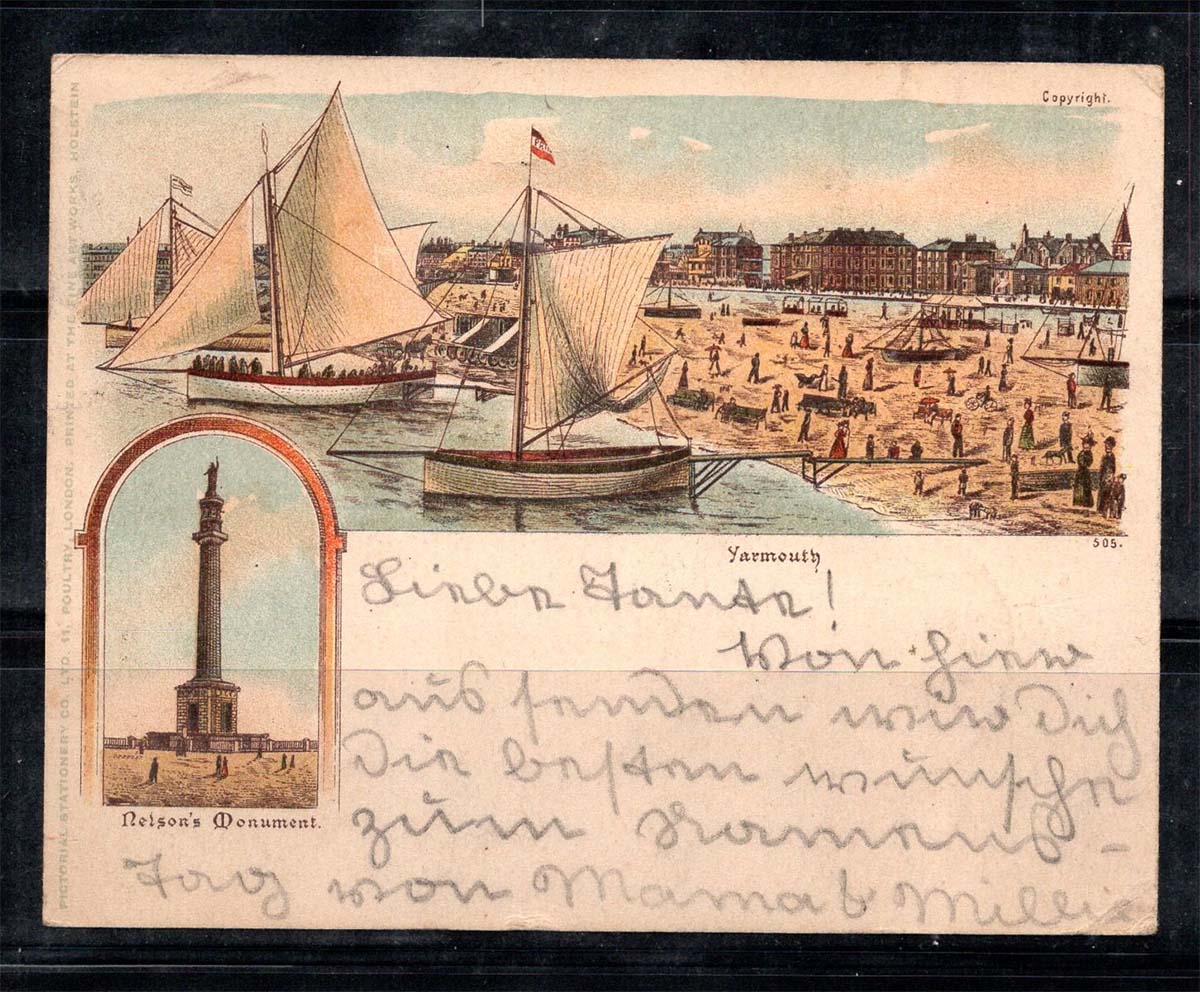 Copyright.
PICTORIAL STATIONERY CO. LTD. 11, POULTRY, LONDON. PRINTED AT THE FINE ART WORKS, HOLSTEIN
505.
Yarmouth
Nelson's Monument.
Liebe Tante!
Von hier
aus senden wir Dich
die besten wünsche
zum Namens-
Tag von Mama &